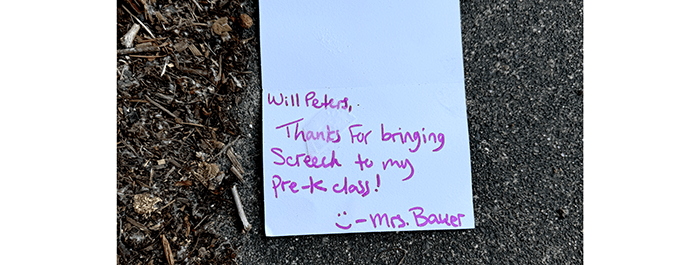 Will Peters,
Thanks For bringing
Screech to my
Pre-K class!
-Mrs. Bauer